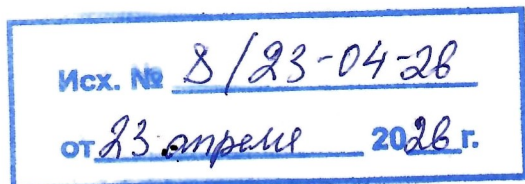 Исх. № 8/23-04-26
от 23 апреля 2026 г.